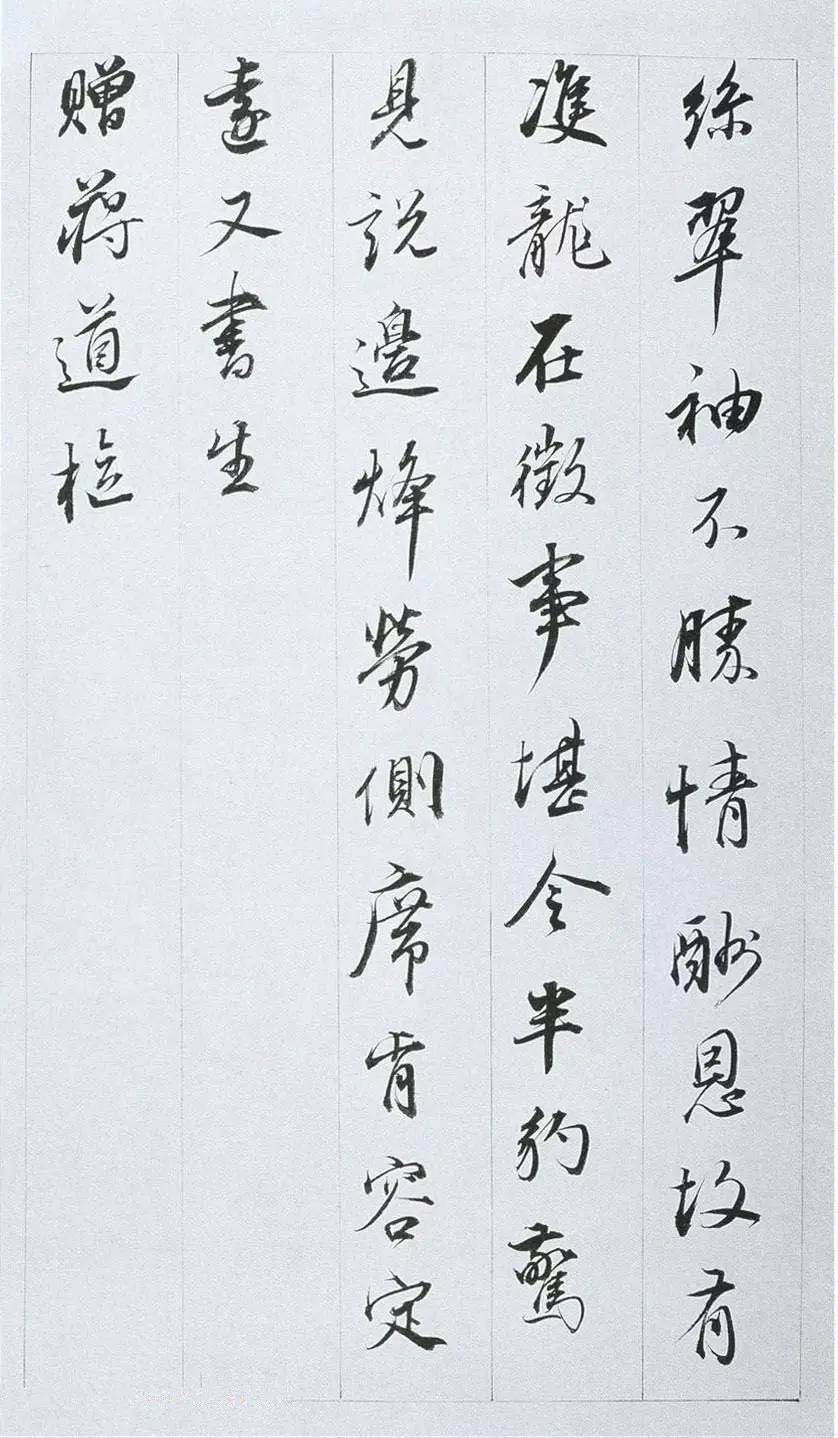 絲翠袖不勝情酬恩故有
雙龍在徵事堪令半豹驚
見說邊烽勞側席肯容定
遠又書生
贈蔣道樞